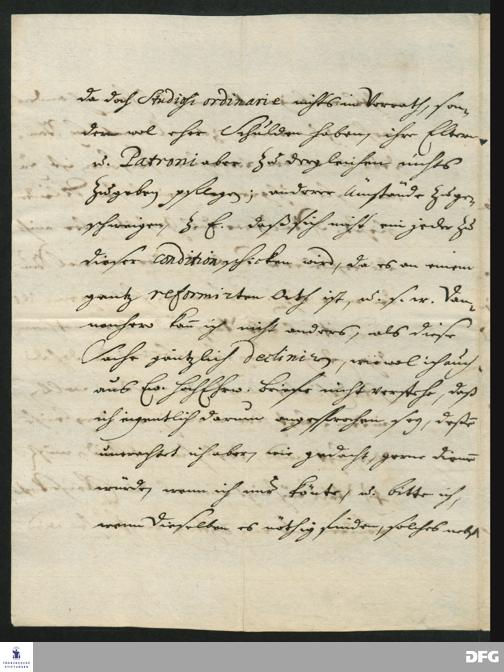 da doch Studiosi ordinarie nichts im Vorrath, son-
dern wol eher Schulden haben, ihre Eltern
u. Patroni aber zu dergleichen nichts
zugeben pflegen; anderer Umstände zuge-
schweigen, z. E. daß sich nicht ein jeder zu
dieser condition schicken wird, da es an einem
gantz reformirten Orth ist, u. s. w. Dan-
nenhero kan ich nicht anders, als diese
Sache gäntzlich decliniren, wiewol ich auch
aus Ew. HochEhrw. Briefe nicht verstehe, daß
ich eigentlich darum angesprochen sey, deßen
unerachtet ich aber, wie gedacht, gerne dienen
würde, wenn ich nur könte, u. bitte ich,
wenn Dieselben es nöthig finden, solches nebst
FRANCKESCHE
STIFTUNGEN
DFG